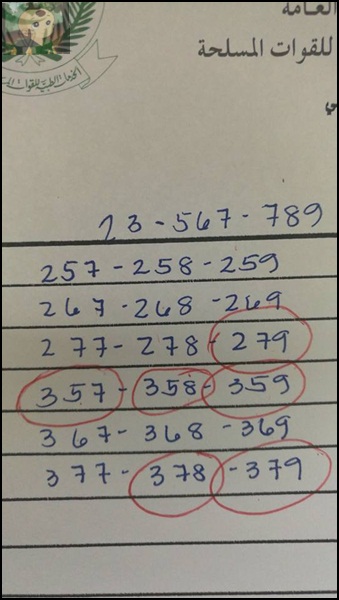 العامة
للقوات المسلحة
ي
الخدمات الطبية للقوات
23-567-789
257-258-259
267-268-269
277-278-279
357-358-359
367-368-369
377-378-379